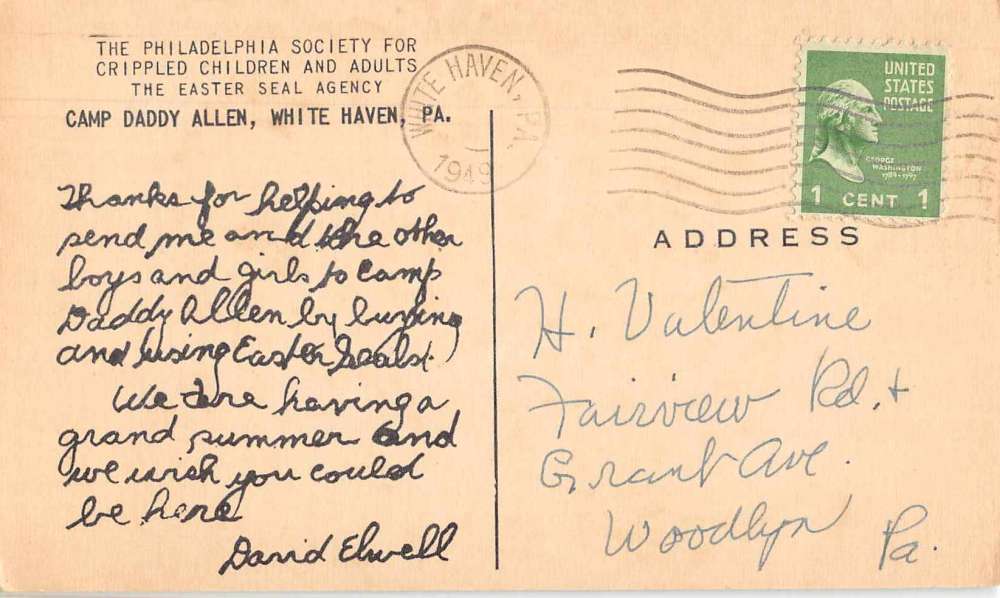 THE PHILADELPHIA SOCIETY FOR
CRIPPLED CHILDREN AND ADULTS
THE EASTER SEAL AGENCY
CAMP DADDY ALLEN, WHITE HAVEN, PA.
WHITE HAVEN, PA.
1949
UNITED
STATES
POSTAGE
GEORGE
WASHINGTON
1789-1797
1 CENT 1
Thanks for helping to
send me and the other
boys and girls to Camp
Daddy Allen by buying
and using Easter Seals!
We are having a
grand summer and
we wish you could
be here
David Elwell
ADDRESS
H. Valentine
Fairview Rd. +
Grant Ave.
Woodlyn
Pa.